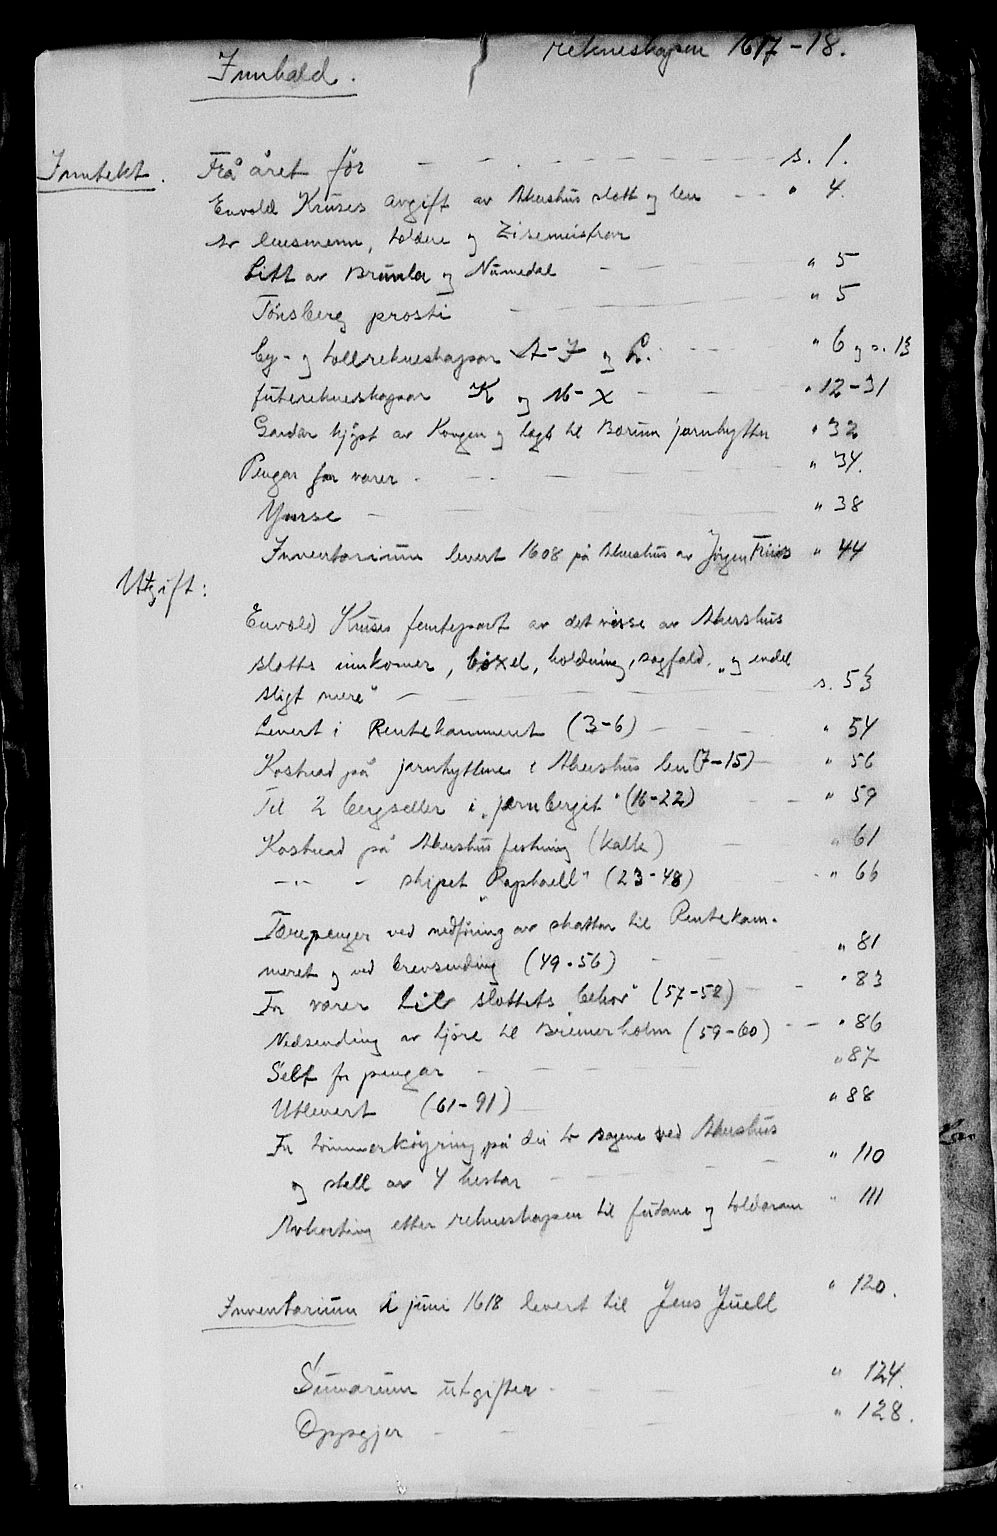 Innhald. i rekneskapen 1617-18.
Inntekt. Frå året før - - - s. 1.
Envold Kruses avgift av Akershus slott og len - - " 4.
Av lensmenn, toldere og Zisemeistrar
Litt av Brunla og Numedal - - " 5
Tønsberg prosti - - " 5
by- og tollrekneskapar A-J og L. - - " 6 og s. 13
futerekneskapar K og M-X - - " 12-31
Gardar kjøpt av Kongen og lagt til Bærum jarnhytter " 32
Pengar for varer - - " 34.
Ymse - " 38
Inventarium levert 1608 på Akershus av Jørgen Friis " 44
Utgift:
Envold Kruses femtepart av det visse av Akershus
slotts innkomer, bøxel, holdning, sagfald, "og endel
sligt mere" - - s. 53
Levert i Rentekammeret (3-6) - - " 54
Kostnad på jarnhyttene i Akershus len (7-15) - " 56
Til 2 bergseller i "jernberget" (16-22) - - " 59
Kostnad på Akershus festning (kalk) - " 61
-"- - skipet "Raphaell" (23-48) - " 66
Tærepenger ved nedføring av skatten til Rentekam-
meret og ved brevsending (49-56) - - " 81
For varer til slottets behov" (57-58) - - " 83
Nedsending av tjøre til Bremerholm (59-60) - - " 86
Self for pengar - - " 87
Utlevert (61-91) - " 88
For tømmerkøyring på dei to sagene ved Akershus
og stell av 4 hestar - - " 110
Avkorting etter rekneskapen til futane og toldarane " 111
Inventarium 1 juni 1618 levert til Jens Juell " 120.
Sumarum utgifter - - " 124.
Oppgjer - - " 128.